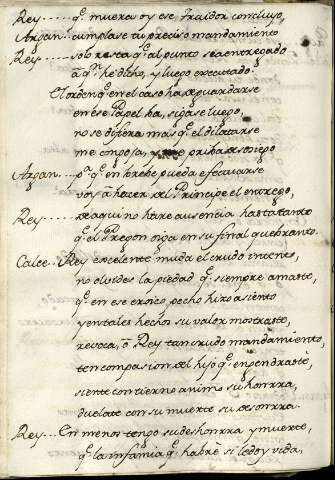 Rey.... q.e muera oy ese Traidor concluyo,
Argan... cumplase tu preciso mandamiento
Rey.... solo resta q.e al punto sea entregado
a q.n he dicho, y luego executado.
El orden q.e en el caso ha de guardarse
en ese Papel ba, sigase luego,
no se difiera mas q.e el dilatarse
me enoja, y me priba de sosiego
Argan.... p.a q.e en brebe pueda efectuarse
voy a hacer del Principe el entrego,
Rey.... de aqui no haré ausencia hasta tanto
q.e el Pregon oiga en su final quebranto.
Calce.. Rey excelente muda el crudo intento,
no olvides la piedad q.e siempre amaste,
q.e en ese eroico pecho hizo asiento
y en tales hechos su valor mostraste,
revoca, ó Rey tan crudo mandamiento,
ten compasion del hijo q.e engendraste,
siente con tierno animo su honrra,
duelate con su muerte su desonrra.
Rey.... En menos tengo su deshonrra y muerte,
q.e la infamia q.e habré si le doy vida,